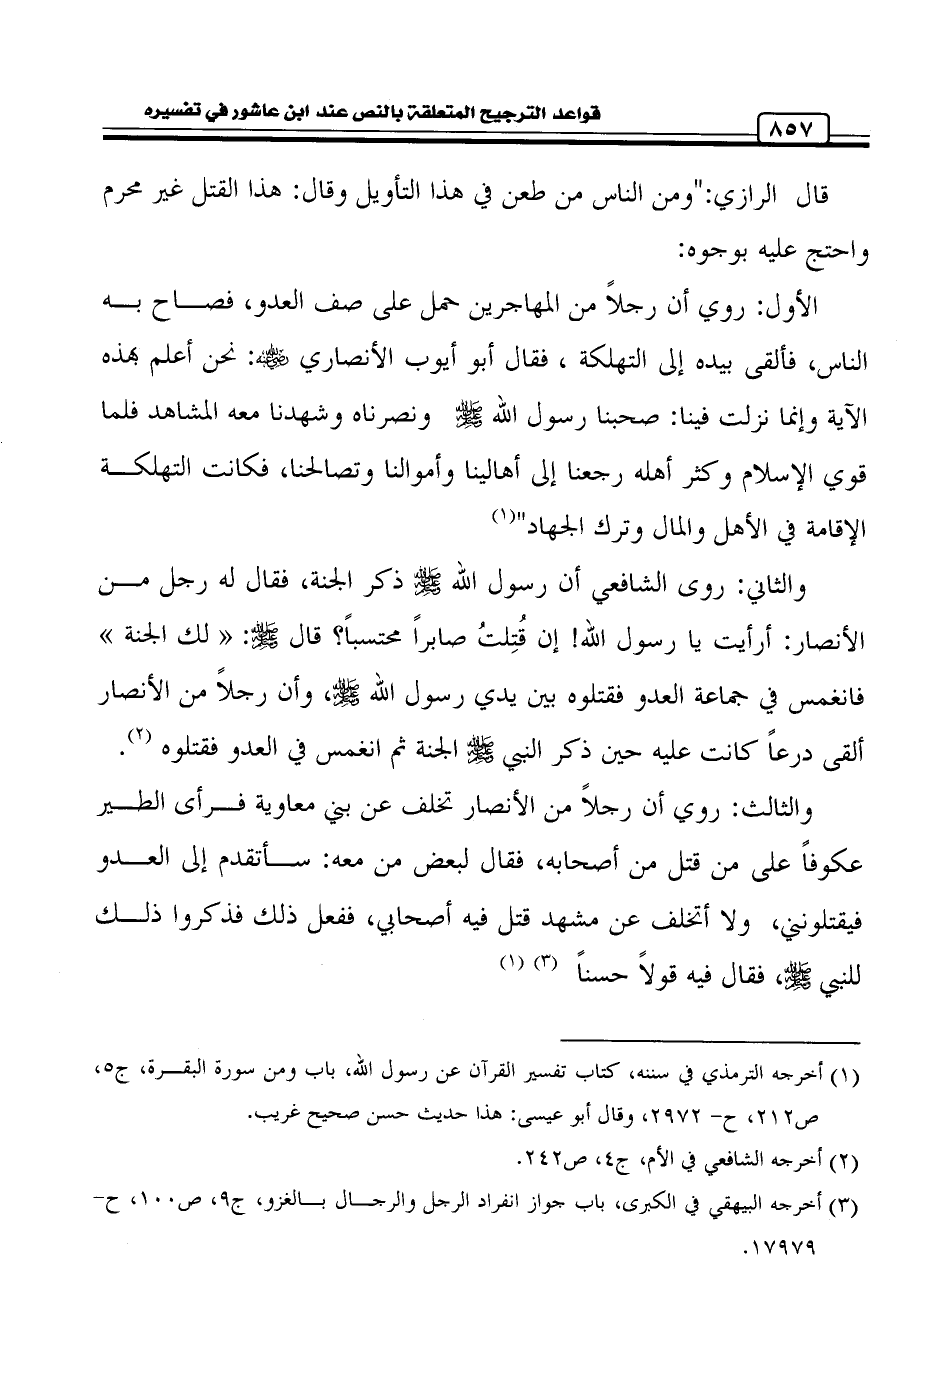 قواعد الترجيح المتعلقة بالنص عند ابن عاشور في تفسيره
٨٥٧
قال الرازي: "ومن الناس من طعن في هذا التأويل وقال: هذا القتل غير محرم
واحتج عليه بوجوه:
الأول: روي أن رجلاً من المهاجرين حمل على صف العدو، فصاح به
الناس، فألقى بيده إلى التهلكة ، فقال أبو أيوب الأنصاري رضي الله عنه: نحن أعلم بهذه
الآية وإنما نزلت فينا: صحبنا رسول الله ﷺ ونصرناه وشهدنا معه المشاهد فلما
قوي الإسلام وكثر أهله رجعنا إلى أهالينا وأموالنا وتصالحنا، فكانت التهلكة
الإقامة في الأهل والمال وترك الجهاد"(١)
والثاني: روى الشافعي أن رسول الله ﷺ ذكر الجنة، فقال له رجل من
الأنصار: أرأيت يا رسول الله! إن قُتِلتُ صابراً محتسباً؟ قال ﷺ: « لك الجنة »
فانغمس في جماعة العدو فقتلوه بين يدي رسول الله ﷺ، وأن رجلاً من الأنصار
ألقى درعاً كانت عليه حين ذكر النبي ﷺ الجنة ثم انغمس في العدو فقتلوه (٢).
والثالث: روي أن رجلاً من الأنصار تخلف عن بني معاوية فرأى الطير
عكوفاً على من قتل من أصحابه، فقال لبعض من معه: سأتقدم إلى العدو
فيقتلونني، ولا أتخلف عن مشهد قتل فيه أصحابي، ففعل ذلك فذكروا ذلك
للنبي ﷺ، فقال فيه قولاً حسناً (٣) (١)
(١) أخرجه الترمذي في سننه، كتاب تفسير القرآن عن رسول الله، باب ومن سورة البقرة، ج٥،
ص٢١٢، ح- ٢٩٧٢، وقال أبو عيسى: هذا حديث حسن صحيح غريب.
(٢) أخرجه الشافعي في الأم، ج٤، ص٢٤٢.
(٣) أخرجه البيهقي في الكبرى، باب جواز انفراد الرجل والرجال بالغزو، ج٩، ص١٠٠، ح-
١٧٩٧٩.